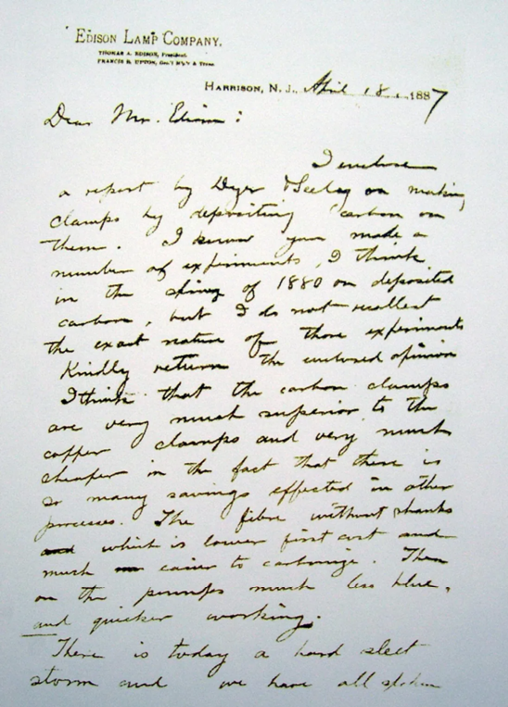 EDISON LAMP COMPANY.
THOMAS A. EDISON, President.
FRANCIS R. UPTON, Gen'l M'g'r & Treas.
HARRISON, N. J., April 18, 1887
Dear Mr. Edison:
I enclose
a report by Dyer & Seeley on making
clamps by depositing carbon on
them. I know you made a
number of experiments, I think
in the of 1880 on deposited
carbon, but I do not recollect
the exact nature of those experiments
Kindly return the enclosed opinion
I think that the carbon clamps
are very much superior to the
copper clamps and very much
cheaper in the fact that there is
so many savings effected in other
processes. The fibre without shanks
and which is lower first cost and
much easier to carbonize. Then
on the pumps much less blue,
and quicker working.
There is today a hard sleet
storm and we have all